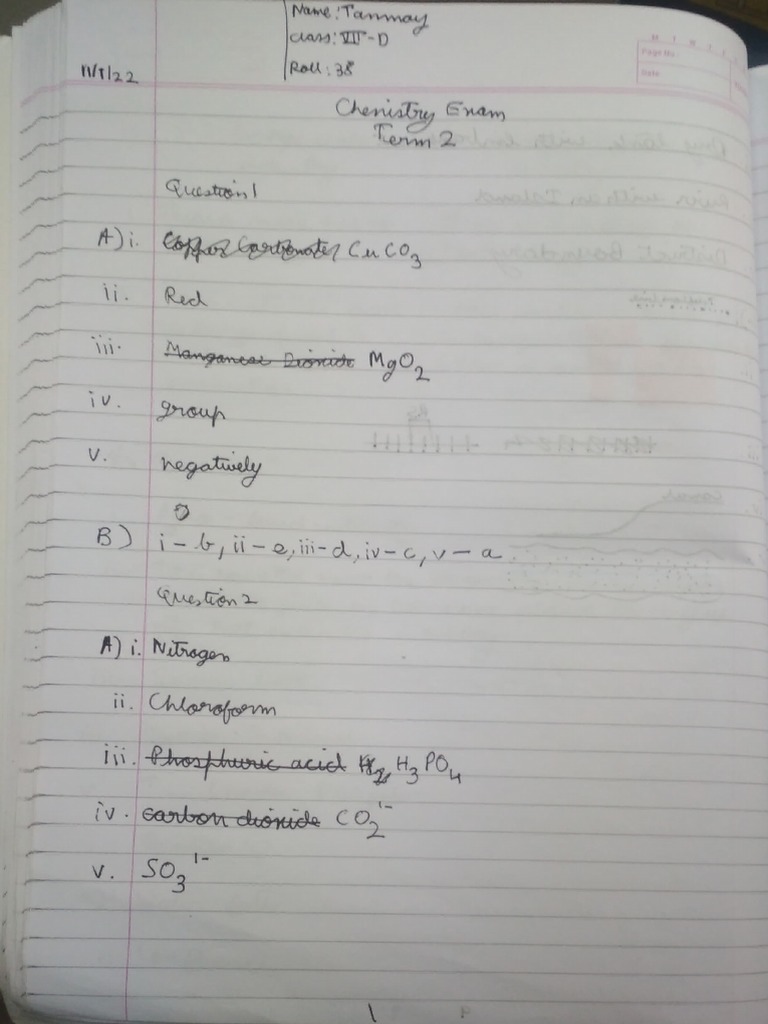 Name: Tanmay
Class: VII-D
Roll: 38
11/1/22
Page No.
Date
Chemistry Exam
Term 2
Question 1
A) i. Copper Carbonate CuCO3
ii. Red
iii. Manganese Dioxide MgO2
iv. group
v. negatively
B) i-b, ii-e, iii-d, iv-c, v-a
Question 2
A) i. Nitrogen
ii. Chloroform
iii. Phosphuric acid H2 H3PO4
iv. carbon dioxide CO2 1-
v. SO3 1-
1